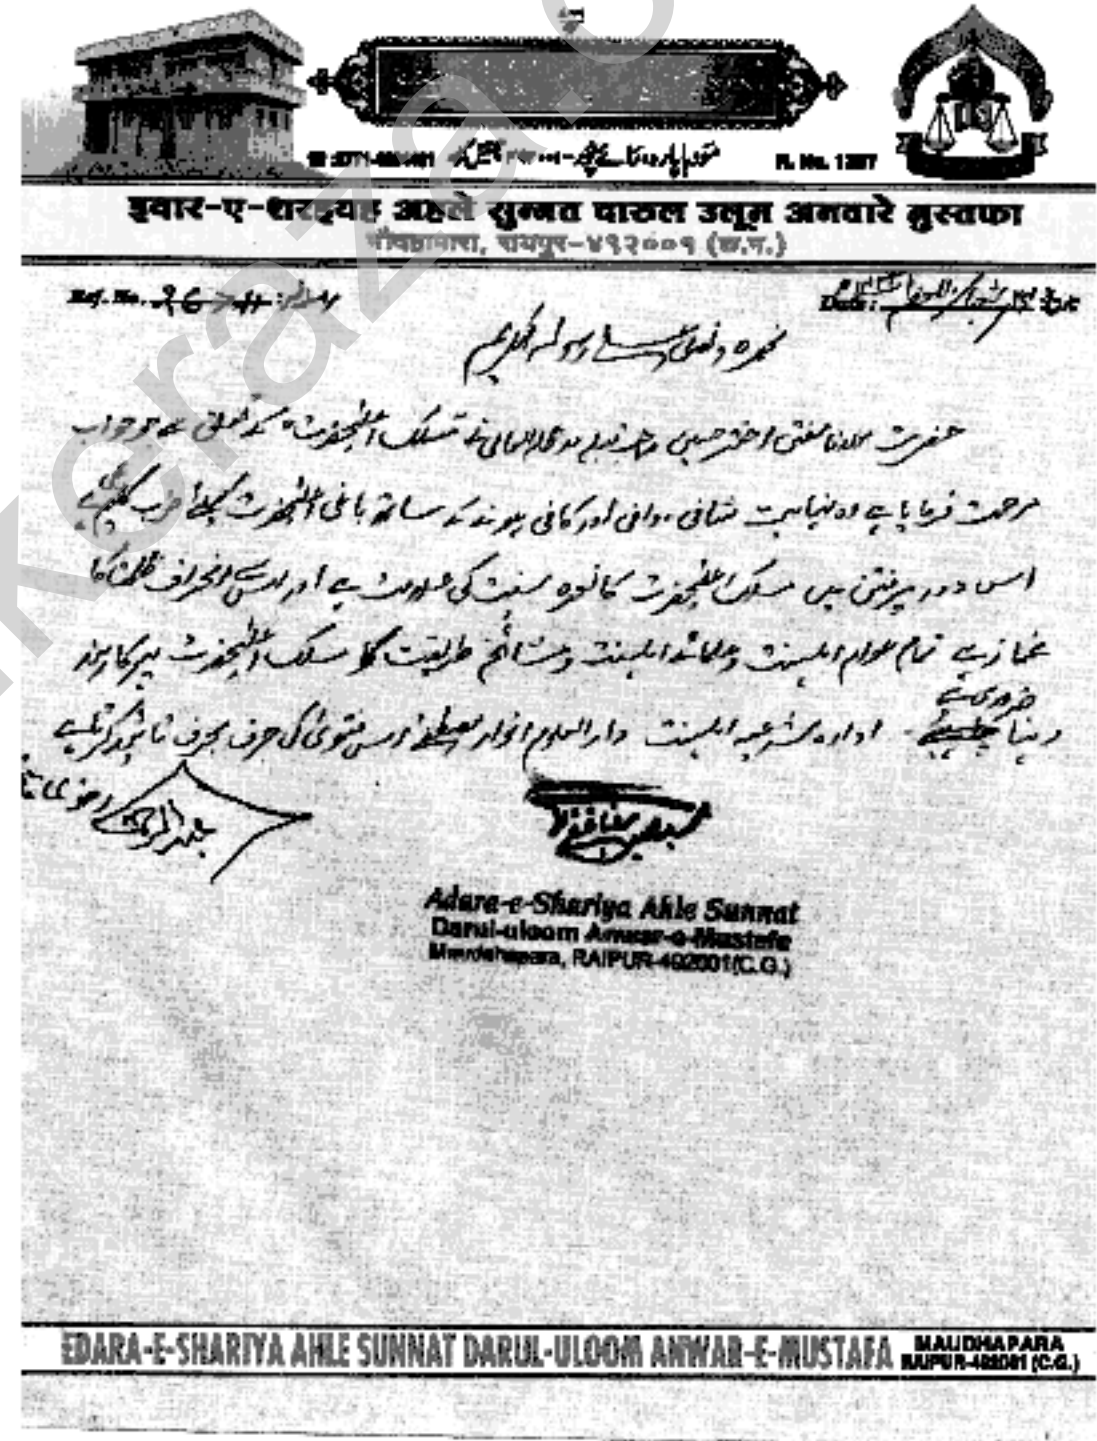 R. No. 1387
इदार-ए-शरइयाह अहले सुन्नत दारुल उलूम अनवारे मुस्तफा
मौदहापारा, रायपुर-४९२००१ (छ.ग.)
Ref. No.
Date:
نحمدہ ونصلی علیٰ رسولہ الکریم
حضرت مولانا مفتی اختر حسین صاحب قبلہ مدظلہ العالی نے مسلک اعلیٰحضرت کے متعلق سے جو جواب
مرحمت فرمایا ہے وہ نہایت شافی، وافی اور کافی ہونے کے ساتھ باغی اعلیٰحضرت کیلئے ضرب کلیمی ہے
اس دور پرفتن میں مسلک اعلیٰحضرت کا نعرہ سنیت کی علامت ہے اور اس سے انحراف ظلمت کا
غماز ہے تمام عوام اہلسنت وعلمائے اہلسنت ومشائخ طریقت کو مسلک اعلیٰحضرت پر کاربند
رہنا ضروری ہے۔ ادارہ شرعیہ اہلسنت دارالعلوم انوار مصطفےٰ اس فتویٰ کی حرف بحرف تائید کرتا ہے
Adara-e-Shariya Ahle Sunnat
Darul-uloom Anwar-e-Mustafa
Maudahapara, RAIPUR-492001(C.G.)
EDARA-E-SHARIYA AHLE SUNNAT DARUL-ULOOM ANWAR-E-MUSTAFA MAUDHAPARA
RAIPUR-492001 (C.G.)